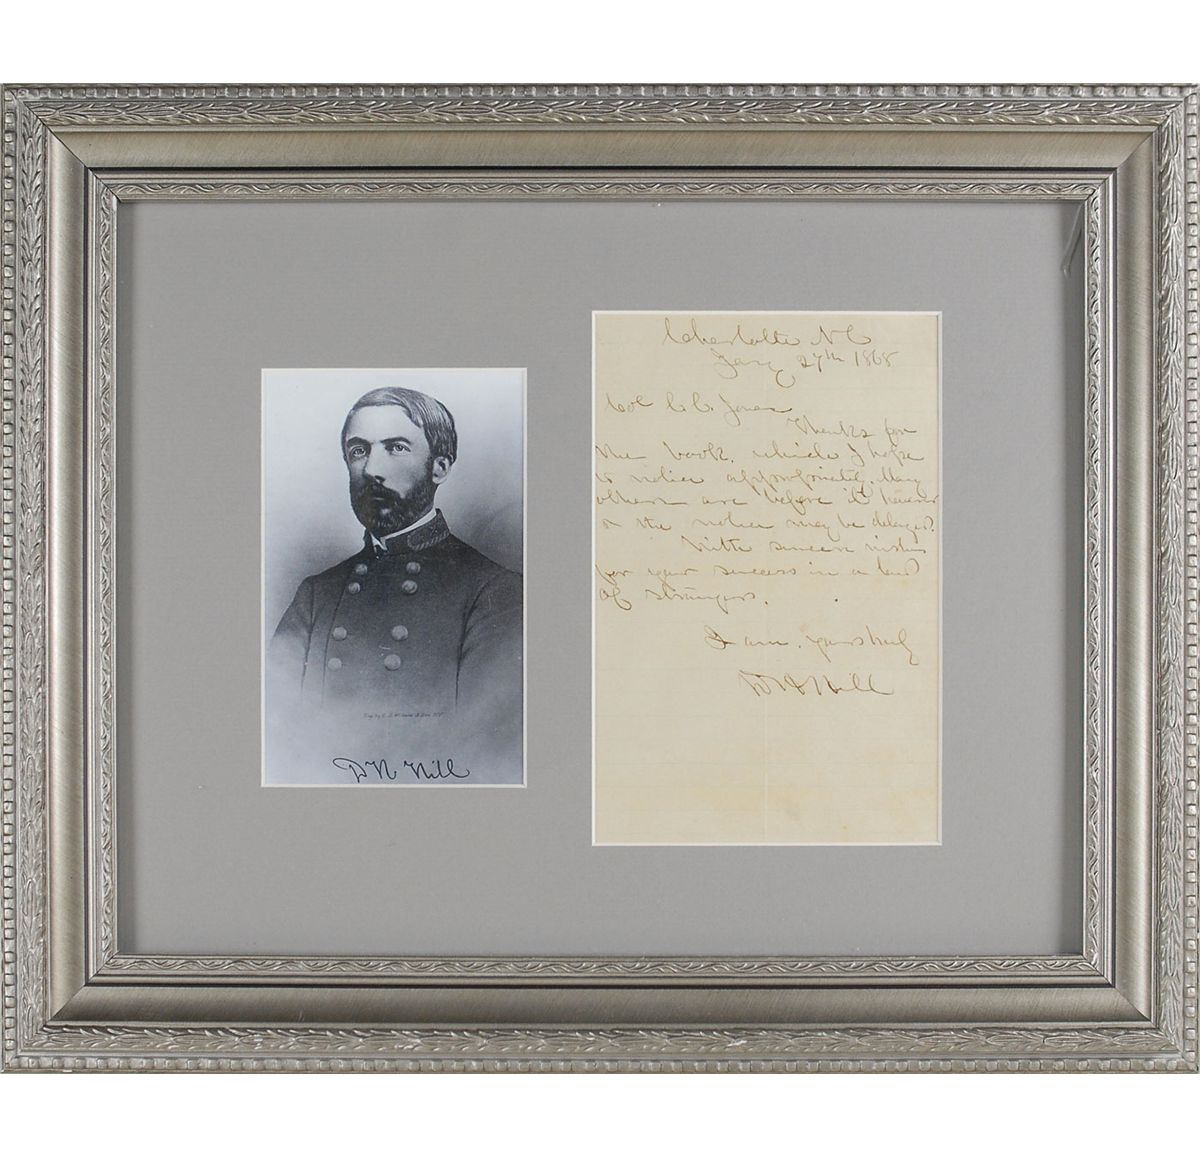 Charlotte N C
Jany 27th 1868
Col C. C. Jones
Thanks for
the book, which I hope
to notice appropriately. Many
others are before it however
& the notice may be delayed.
With sincere wishes
for your success in a land
of strangers.
I am, yours truly
D H Hill
Eng. by
D H Hill